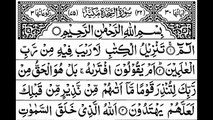 سُوْرَةُ السَّجْدَةِ مَكِّيَّةٌ
بِسْمِ اللّٰهِ الرَّحْمٰنِ الرَّحِيْمِ
الٓمّٓ ۚ تَنْزِيْلُ الْكِتٰبِ لَا رَيْبَ فِيْهِ مِنْ رَّبِّ
الْعٰلَمِيْنَ ؕ اَمْ يَقُوْلُوْنَ افْتَرٰىهُ ۚ بَلْ هُوَ الْحَقُّ مِنْ
رَّبِّكَ لِتُنْذِرَ قَوْمًا مَّاۤ اَتٰىهُمْ مِّنْ نَّذِيْرٍ مِّنْ قَبْلِكَ
لَعَلَّهُمْ يَهْتَدُوْنَ اَللّٰهُ الَّذِيْ خَلَقَ السَّمٰوٰتِ